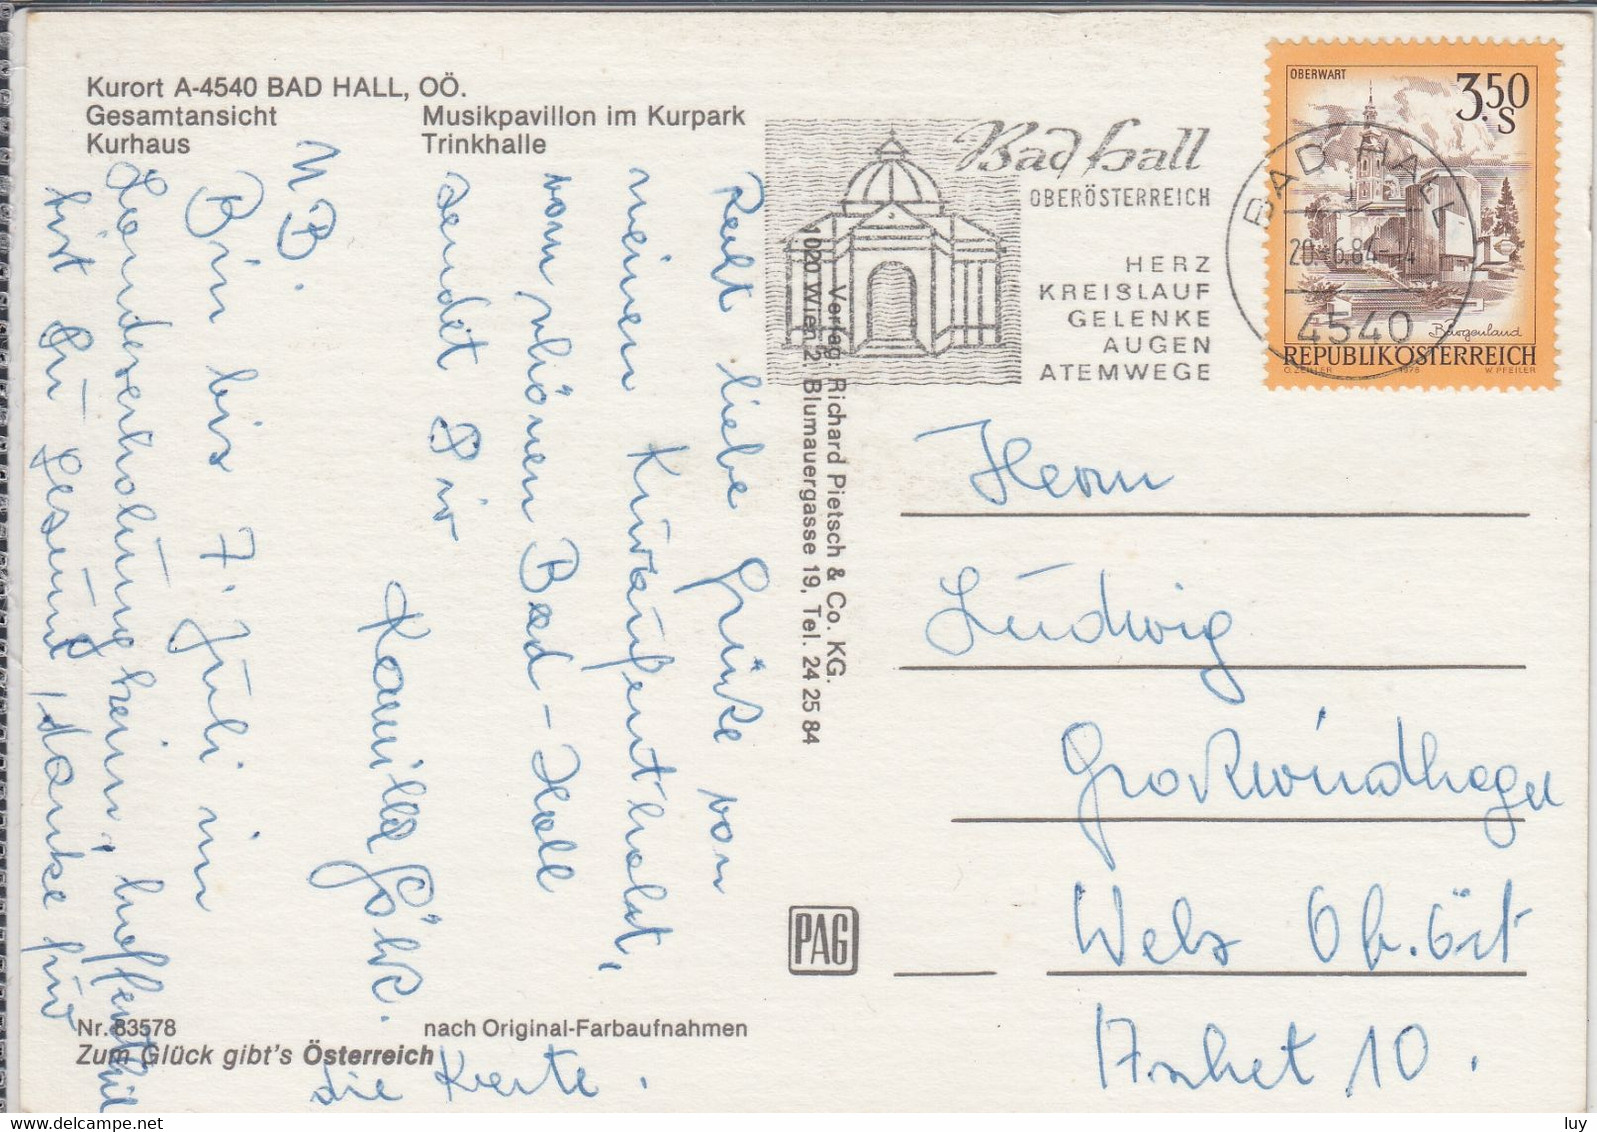 Kurort A-4540 BAD HALL, OÖ.
Gesamtansicht Musikpavillon im Kurpark
Kurhaus Trinkhalle
Recht liebe Grüße von
meinem Kuraufenthalt,
vom schönen Bad-Hall
sendet Dir
Kamilla
NB.
Bin bis 7. Juli im
Landserholungsheim, hoffentlich
bist Du gesund, danke für
die Karte.
Nr. 83578 nach Original-Farbaufnahmen
Zum Glück gibt's Österreich
Verlag: Richard Pietsch & Co. KG.
1020 Wien 2. Blumauergasse 19, Tel. 24 25 84
PAG
Bad Hall
OBERÖSTERREICH
HERZ
KREISLAUF
GELENKE
AUGEN
ATEMWEGE
BAD HALL
20.-6.84-14
4540
OBERWART
3.50
S
Burgenland
REPUBLIK ÖSTERREICH
O. ZEILLER 1976 W. PFEILER
Herrn
Ludwig
Großwindhager
Wels Ob.Öst
10.
delcampe.net
luy